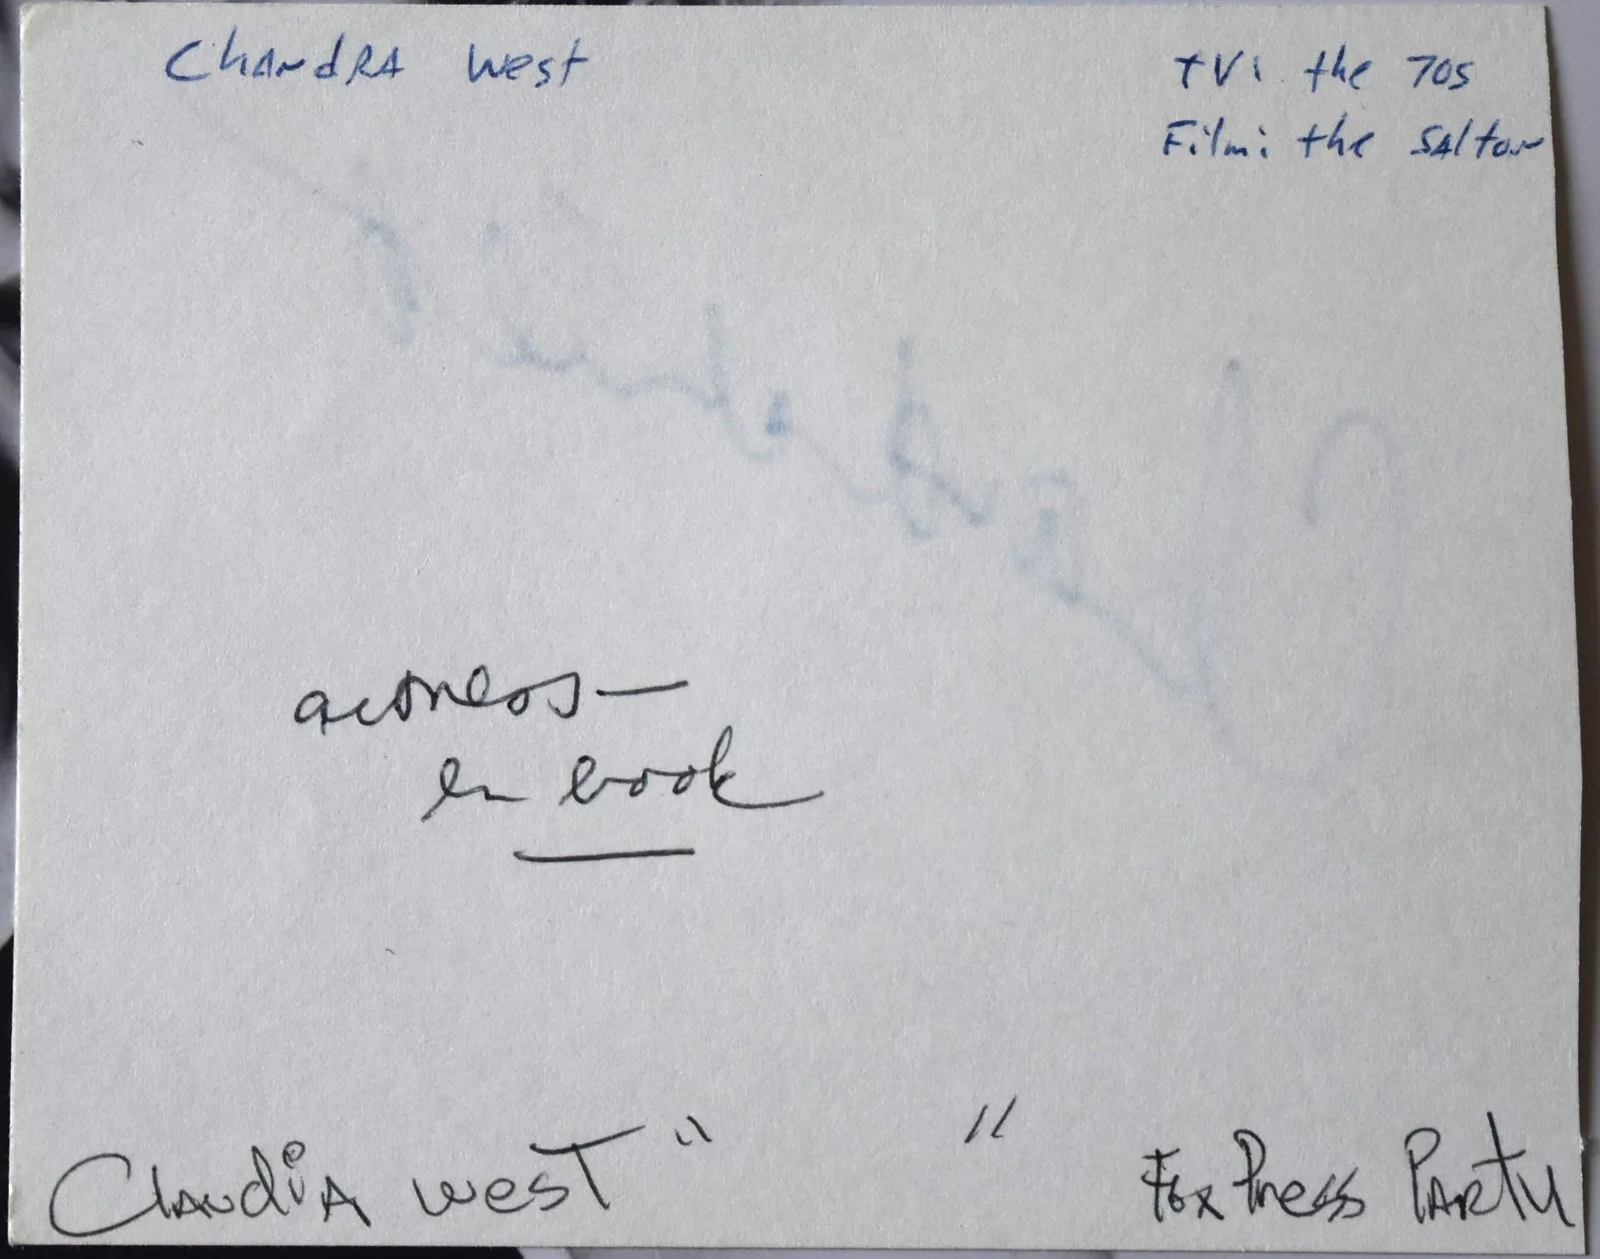 Chandra West
TV: the 70s
Film: the Salton
actress—
in book
Claudia West " "
Fox Press Party